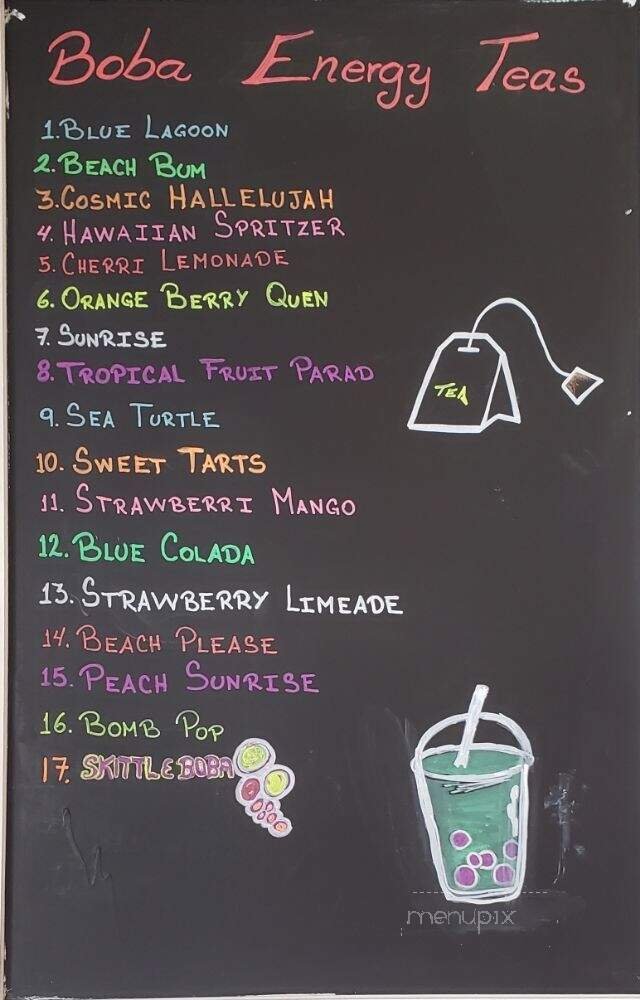 Boba Energy Teas
1. BLUE LAGOON
2. BEACH BUM
3. COSMIC HALLELUJAH
4. HAWAIIAN SPRITZER
5. CHERRI LEMONADE
6. ORANGE BERRY QUEN
7. SUNRISE
8. TROPICAL FRUIT PARAD
TEA
9. SEA TURTLE
10. SWEET TARTS
11. STRAWBERRI MANGO
12. BLUE COLADA
13. STRAWBERRY LIMEADE
14. BEACH PLEASE
15. PEACH SUNRISE
16. BOMB POP
17. SKITTLE BOBA
menupix